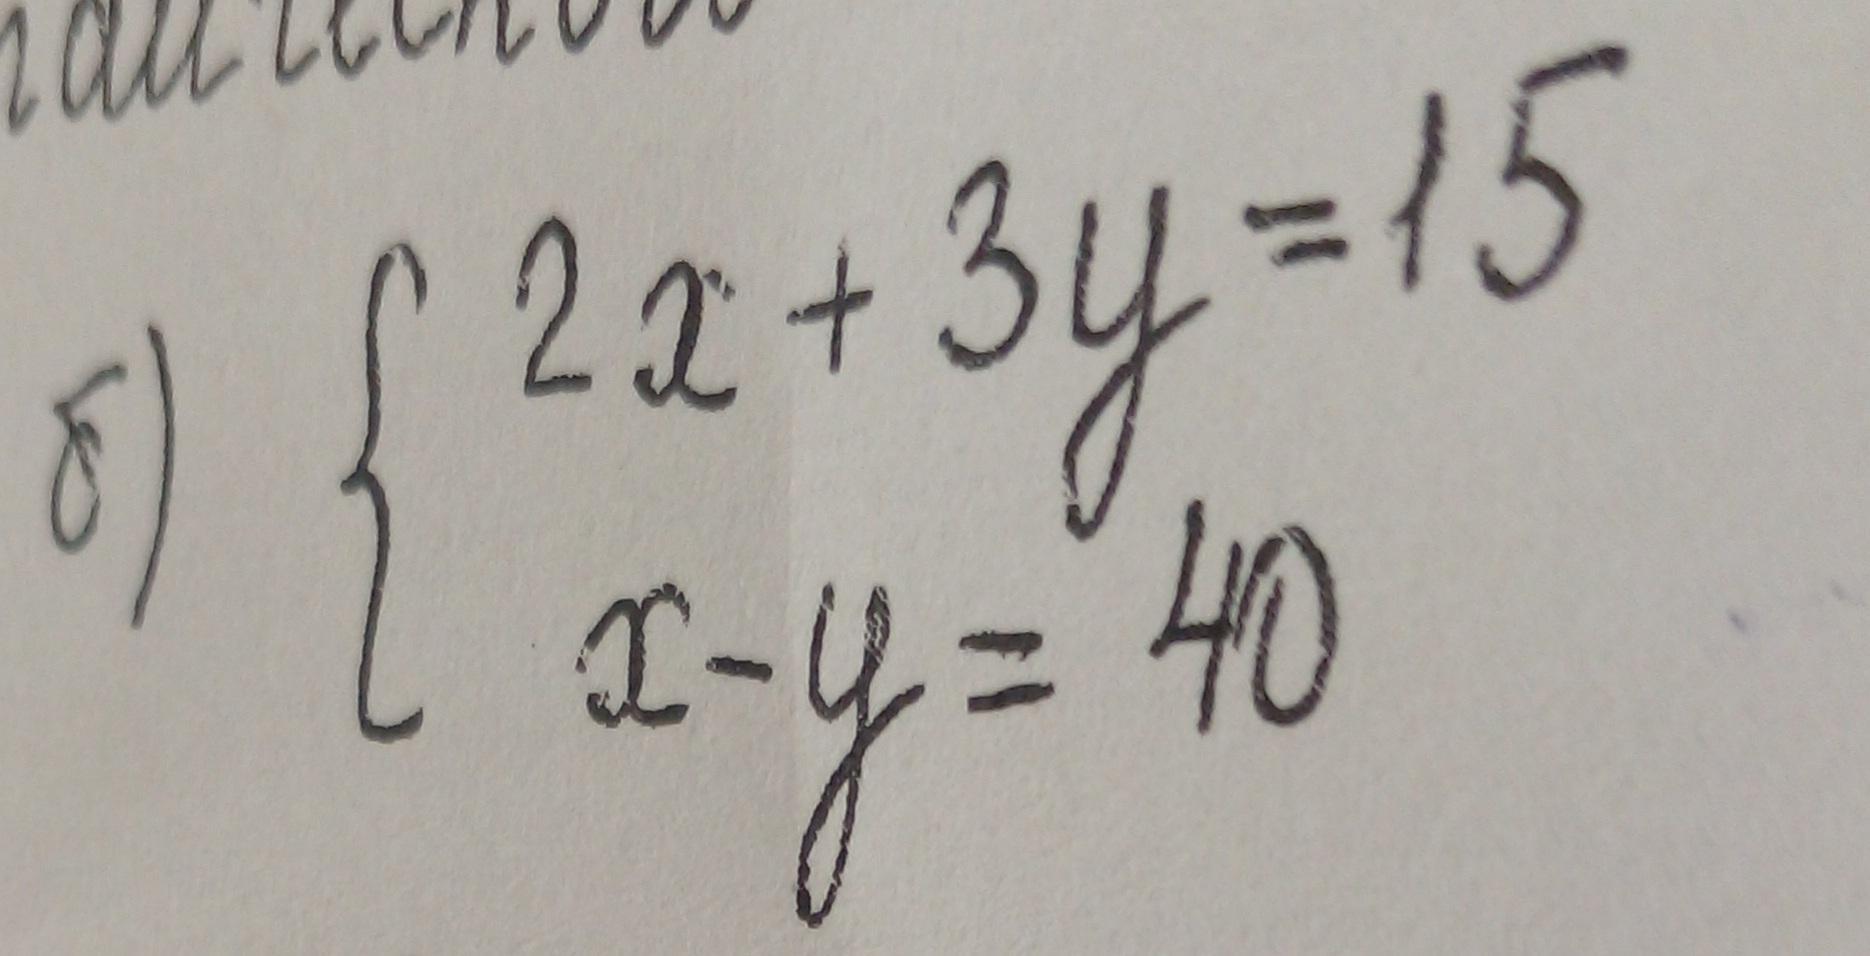 б) { 2x + 3y = 15
x - y = 40